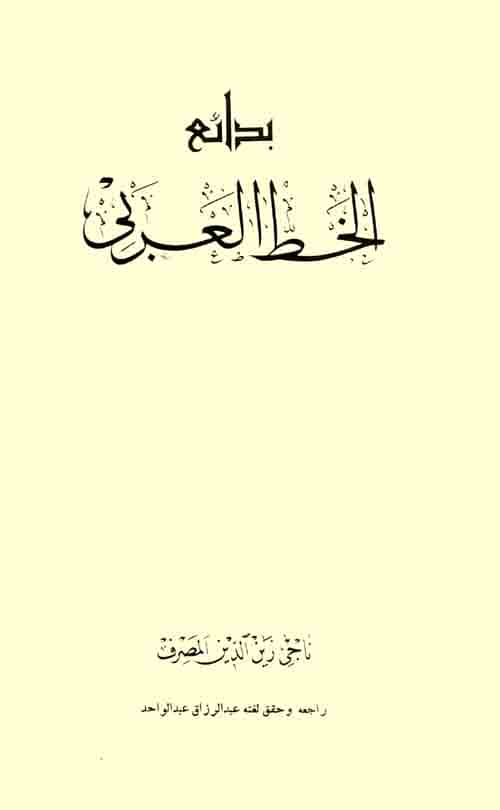 بدائع
الخط العربي
ناجي زين الدين المصرف
راجعه وحقق لغته عبدالرزاق عبدالواحد